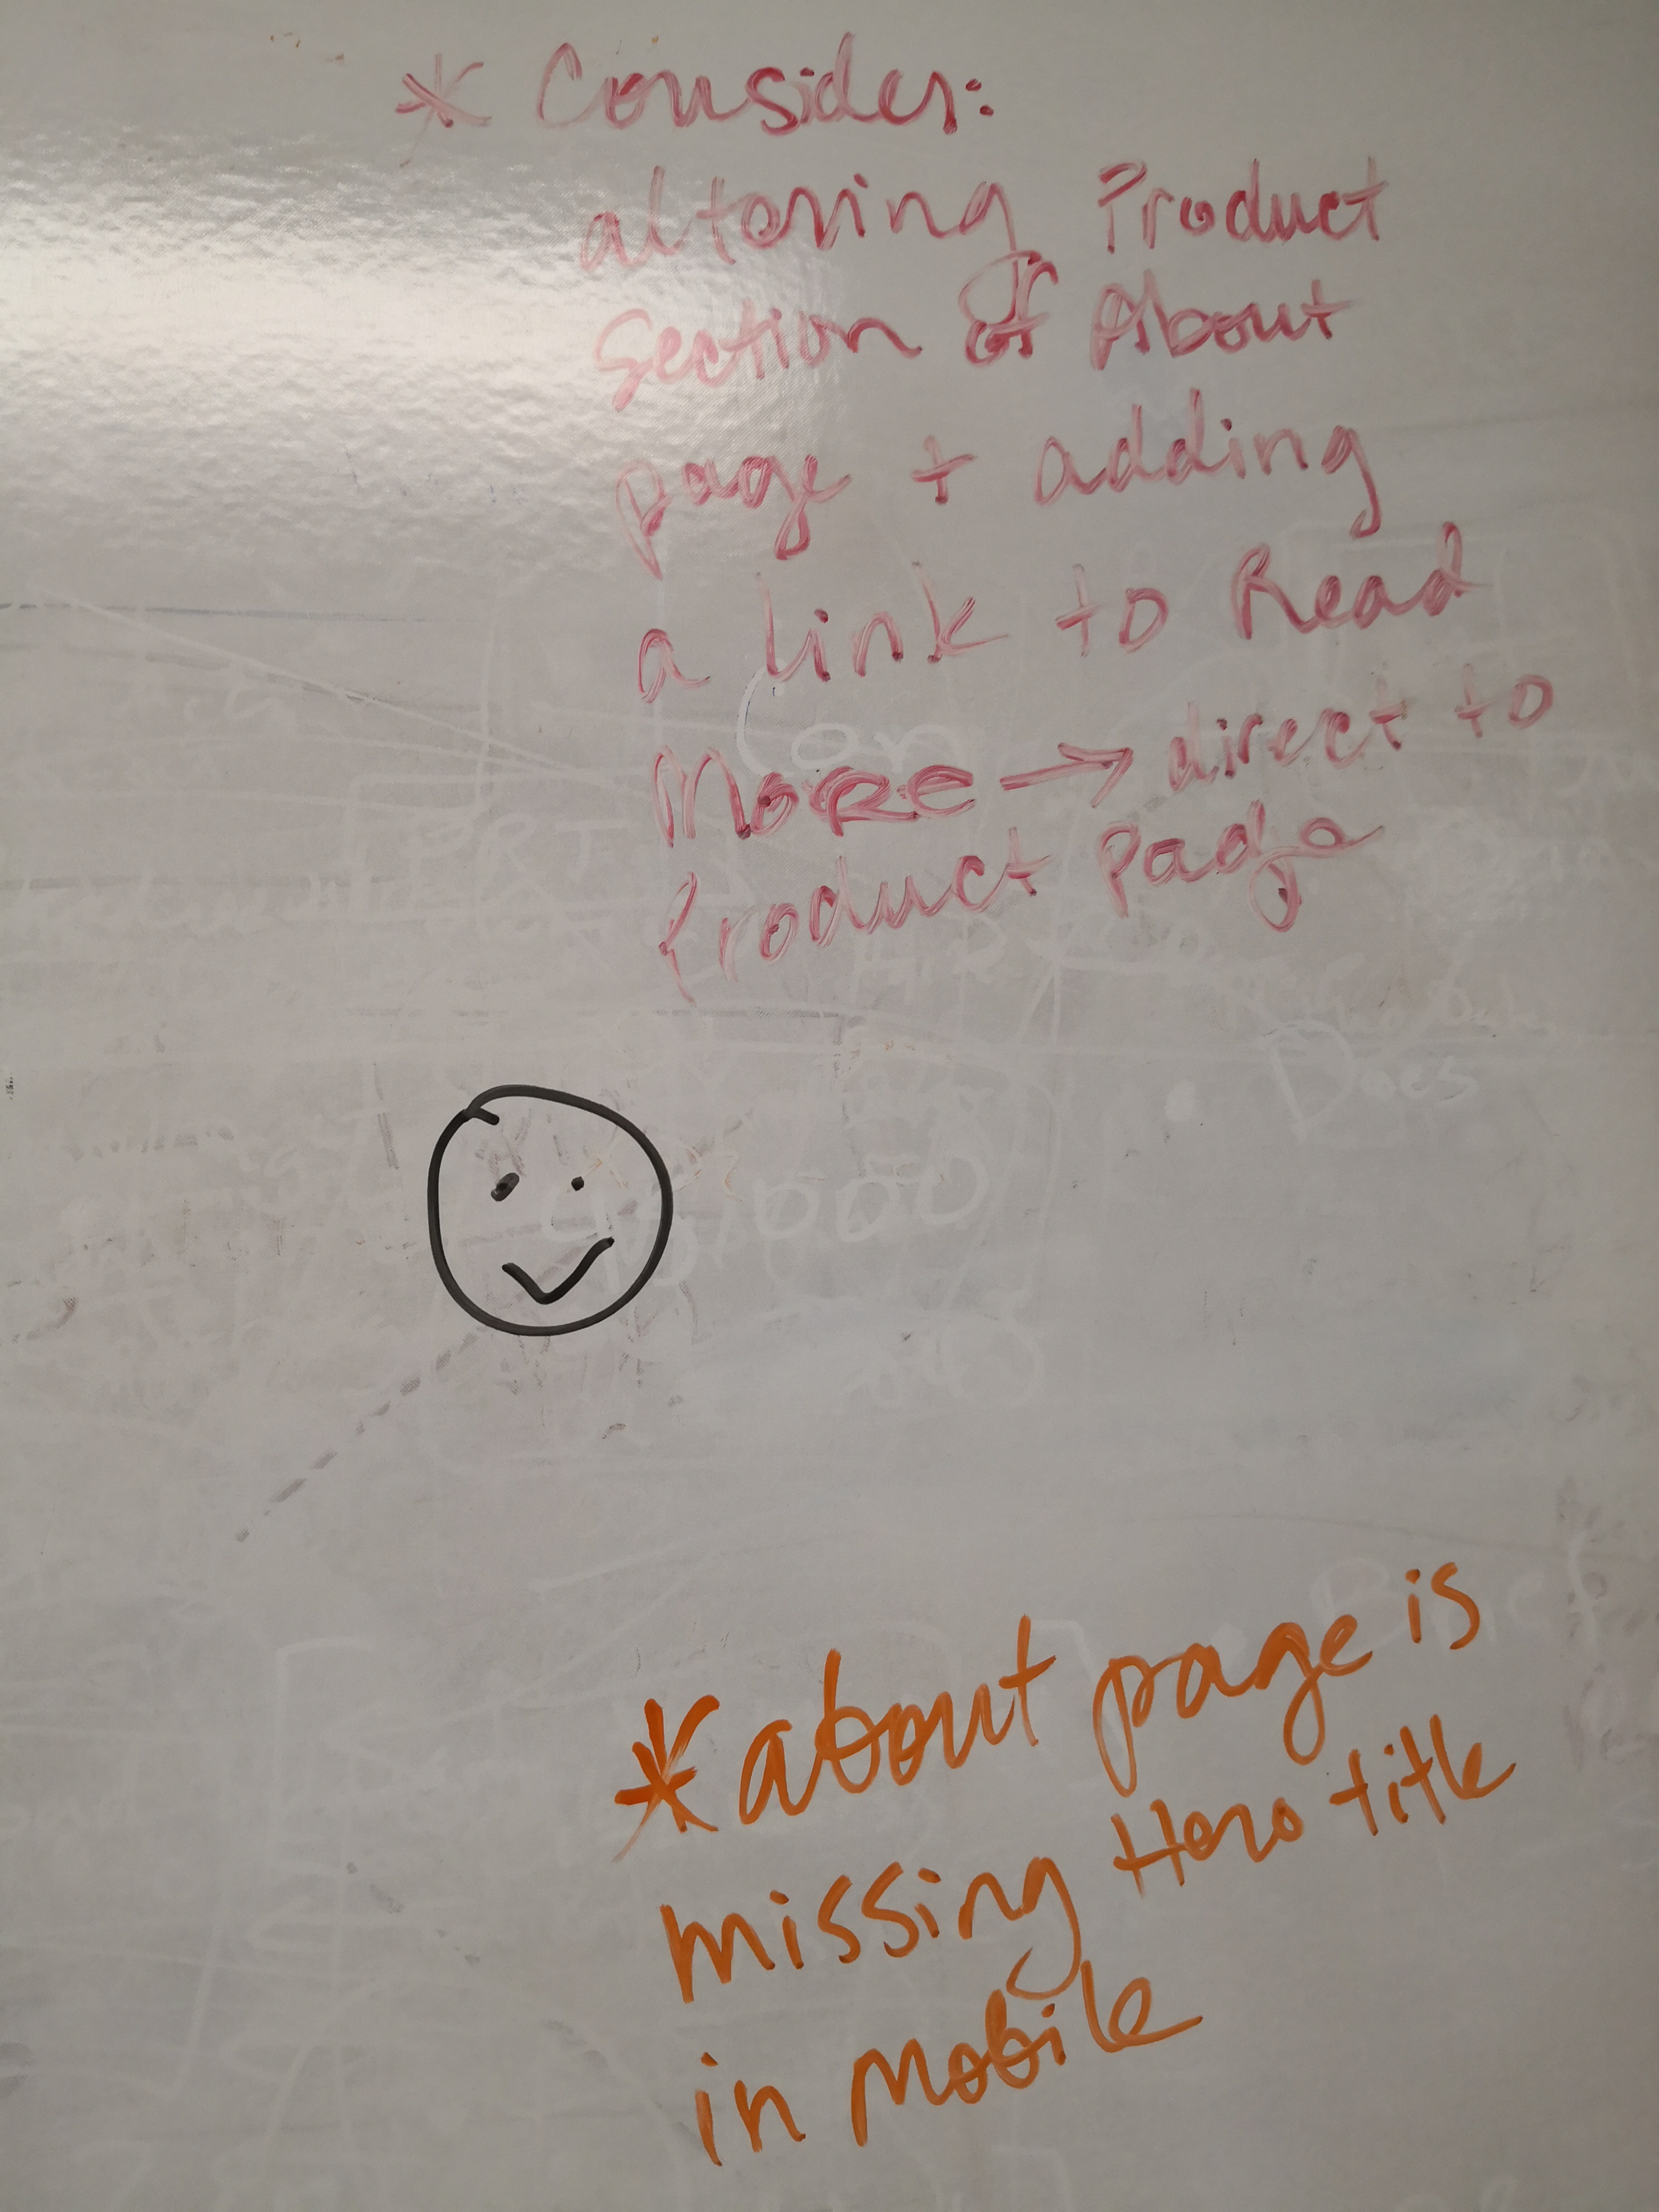 * Consider:
altering Product
Section of About
page + adding
a link to Read
More → direct to
Product Page
Docs
* about page is
missing Hero title
in Mobile